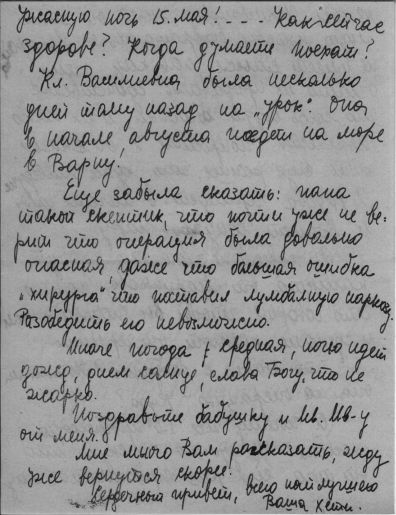 ужасную ночь 15. мая! - - - Как сейчас
здорове? Когда думаете поехат?
Кл. Василиевна была несколько
дней тому назад на „урок“. Она
в начале августа поедет на море
в Варну!
Еще забыла сказать: папа
такой скептик, что почти уже не ве-
рит что операция была довольно
опасная, даже что большая ошибка
„хирурга“ что поставил лумбалную наркозу.
Разобедить его невозможно.
Иначе погода средная, ночю идет
дожд, днем солнце, слава Богу, что не
жарко.
Поздравьте бабушку и Ив. Ив-у
от меня.
Мне много Вам рассказать, жду
уже вернутся скорее!
Сердечный привет, всего наилучшего
Ваша Кети.